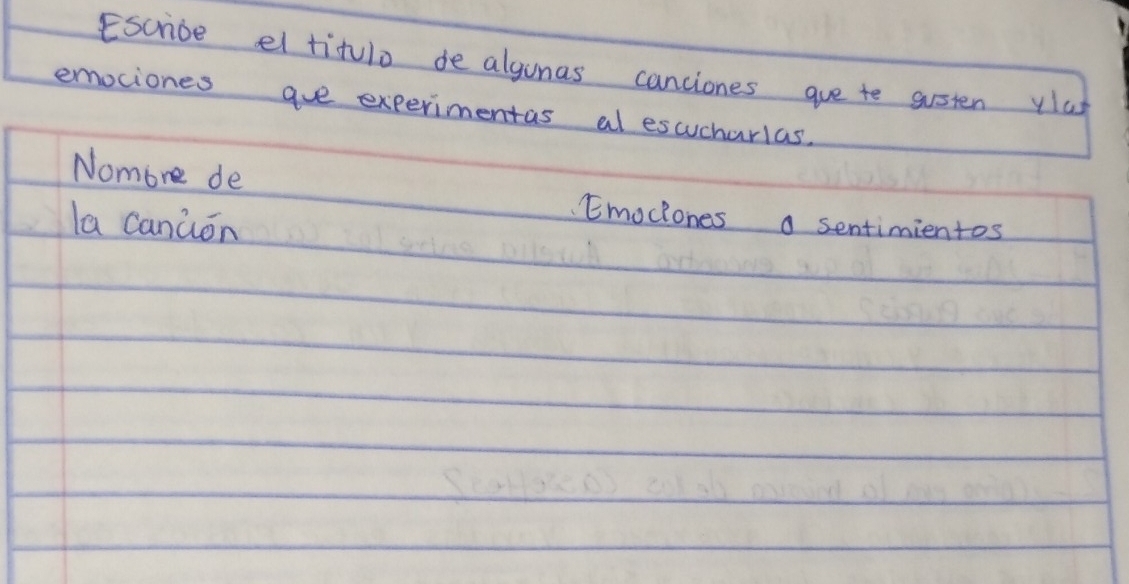 Escribe el titulo de algunas canciones que te gusten y las
emociones que experimentas al escucharlas.
Nombre de
la canción
Emociones o sentimientos